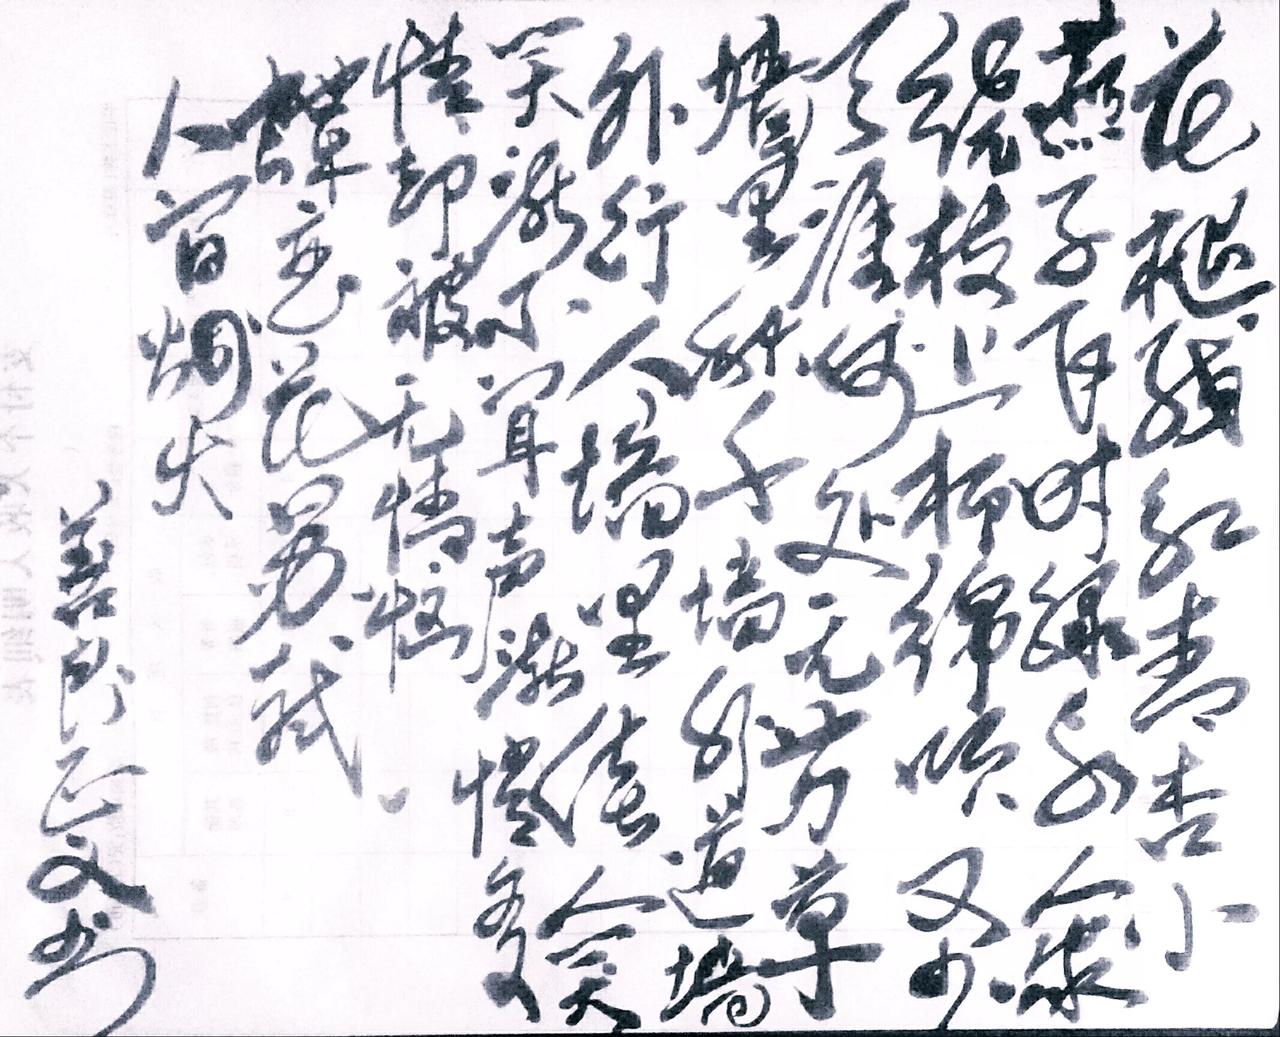 花褪残红青杏小
燕子飞时绿水人家
绕枝上柳绵吹又少
天涯何处无芳草
墙里秋千墙外道墙
外行人墙里佳人笑
笑渐不闻声渐悄多
情却被无情恼
蝶恋花苏轼
人间烟火
善良正文书